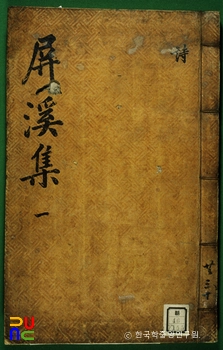 屛溪集 一
詩
共三十
PUNC
© 한국학중앙연구원